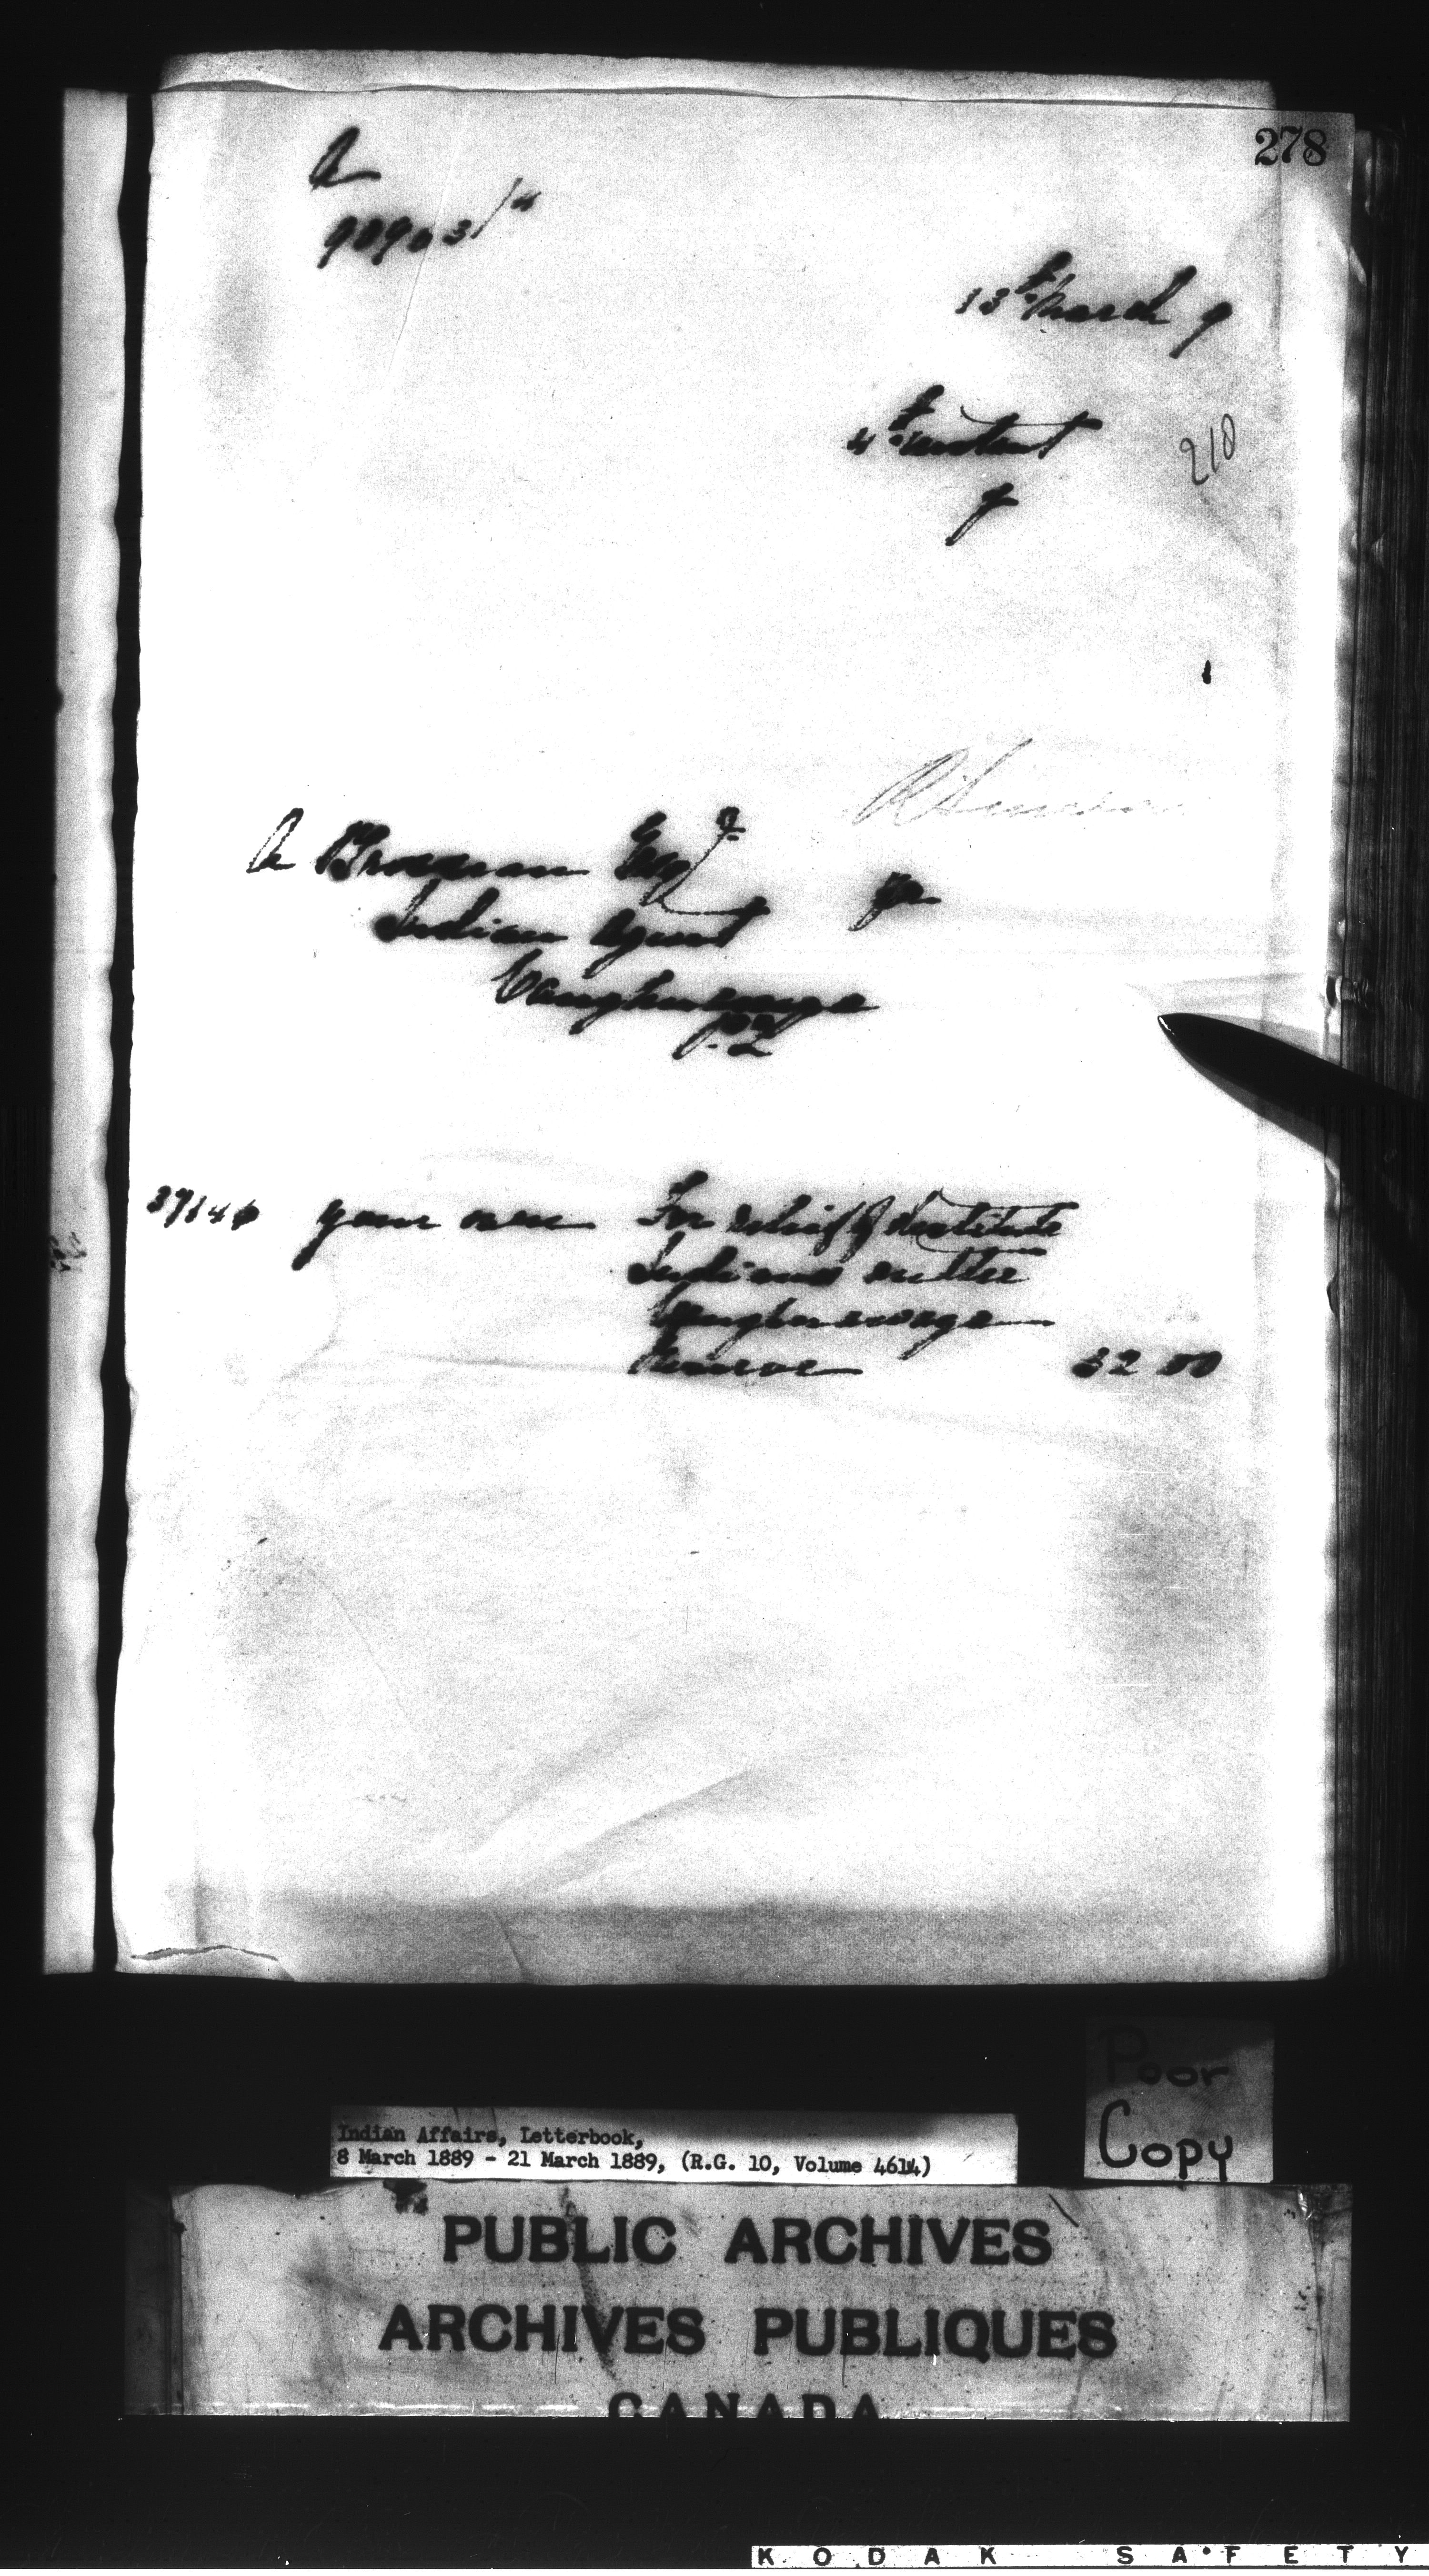 278
A
13th March 9
4th instant
210
A Brosseau Esqr
Indian Agent
Caughnawaga
P.Q
your own For relief of destitute
Indians on the
Caughnawaga
Reserve 32 00
Poor
Copy
Indian Affairs, Letterbook,
8 March 1889 - 21 March 1889, (R.G. 10, Volume 4614)
PUBLIC ARCHIVES
ARCHIVES PUBLIQUES
CANADA
KODAK SAFETY